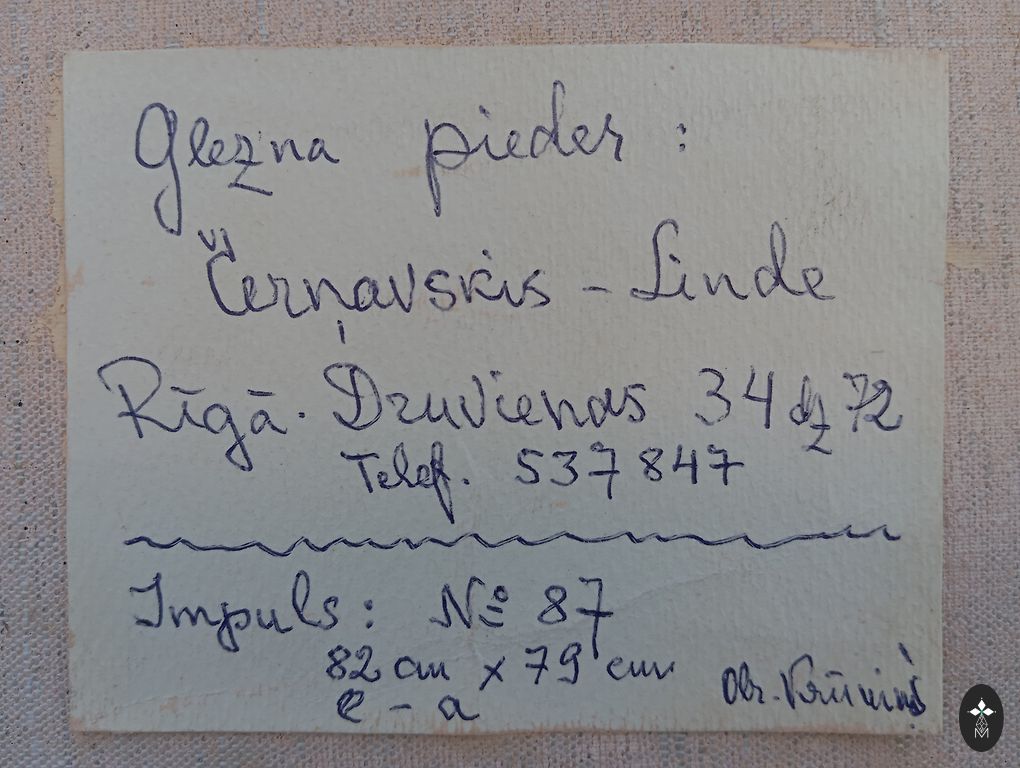 Glezna pieder :
Čerņavskis - Linde
Rīgā. Druvienas 34 dz 72
Telef. 537847
Impuls : № 87
82 cm x 79 cm
e - a
M